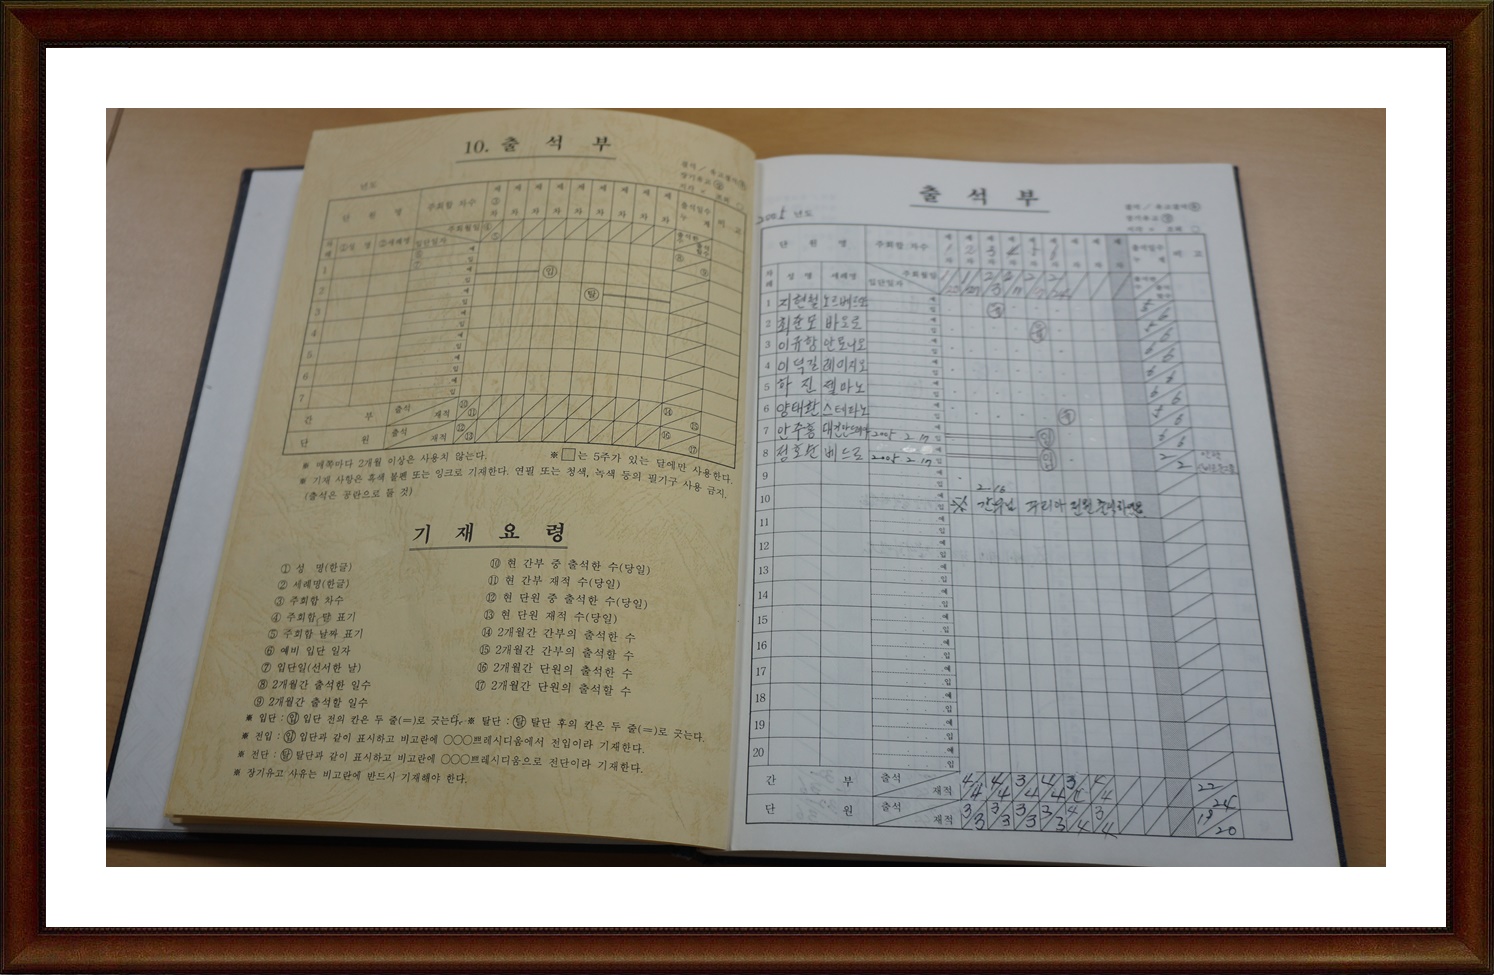 10. 출 석 부
년도
단 원 명
주회합 차수
제 제 제 제 제 제 제 제 제
③
차 차 차 차 차 차 차 차 차
출석일수
누 계
비 고
차례 ①성 명 ②세례명
주회월일
입단일자
1
2
3
4
5
6
7
간 부 출석 재적 ⑩ ⑪ ⑭ ⑮
단 원 출석 재적 ⑫ ⑬ ⑯ ⑰
※ 매쪽마다 2개월 이상은 사용치 않는다.
※ □는 5주가 있는 달에만 사용한다.
※ 기재 사항은 흑색 볼펜 또는 잉크로 기재한다. 연필 또는 청색, 녹색 등의 필기구 사용 금지.
(출석은 공란으로 둘 것)
기 재 요 령
① 성 명(한글)
② 세례명(한글)
③ 주회합 차수
④ 주회합 달 표기
⑤ 주회합 날짜 표기
⑥ 예비 입단 일자
⑦ 입단일(선서한 날)
⑧ 2개월간 출석한 일수
⑨ 2개월간 출석할 일수
⑩ 현 간부 중 출석한 수(당일)
⑪ 현 간부 재적 수(당일)
⑫ 현 단원 중 출석한 수(당일)
⑬ 현 단원 재적 수(당일)
⑭ 2개월간 간부의 출석한 수
⑮ 2개월간 간부의 출석할 수
⑯ 2개월간 단원의 출석한 수
⑰ 2개월간 단원의 출석할 수
※ 입단 : 입 입단 전의 칸은 두 줄(=)로 긋는다. ※ 탈단 : 탈 탈단 후의 칸은 두 줄(=)로 긋는다.
※ 전입 : 입 입단과 같이 표시하고 비고란에 ○○○쁘레시디움에서 전입이라 기재한다.
※ 전단 : 탈 탈단과 같이 표시하고 비고란에 ○○○쁘레시디움으로 전단이라 기재한다.
※ 장기유고 사유는 비고란에 반드시 기재해야 한다.
출 석 부
2005 년도
단 원 명
주회합 차수
출석일수
누 계
비 고
차례 성 명 세례명
주회월일
입단일자
1 지현철 노르베르또
2 최준모 바오로
3 이유함 안토니오
4 이덕길 레이지오
5 하 진 젤마노
6 양태환 스테파노
7 안주홍 2005 2. 17
8 정호연 베드로 2005 2. 17
9
2-16
10
11
12
13
14
15
16
17
18
19
20
간 부 출석 재적 4/4 4/4 3/4 4/4 22/24
단 원 출석 재적 3/3 3/3 3/3 3/3 4/4 3/4 19/20